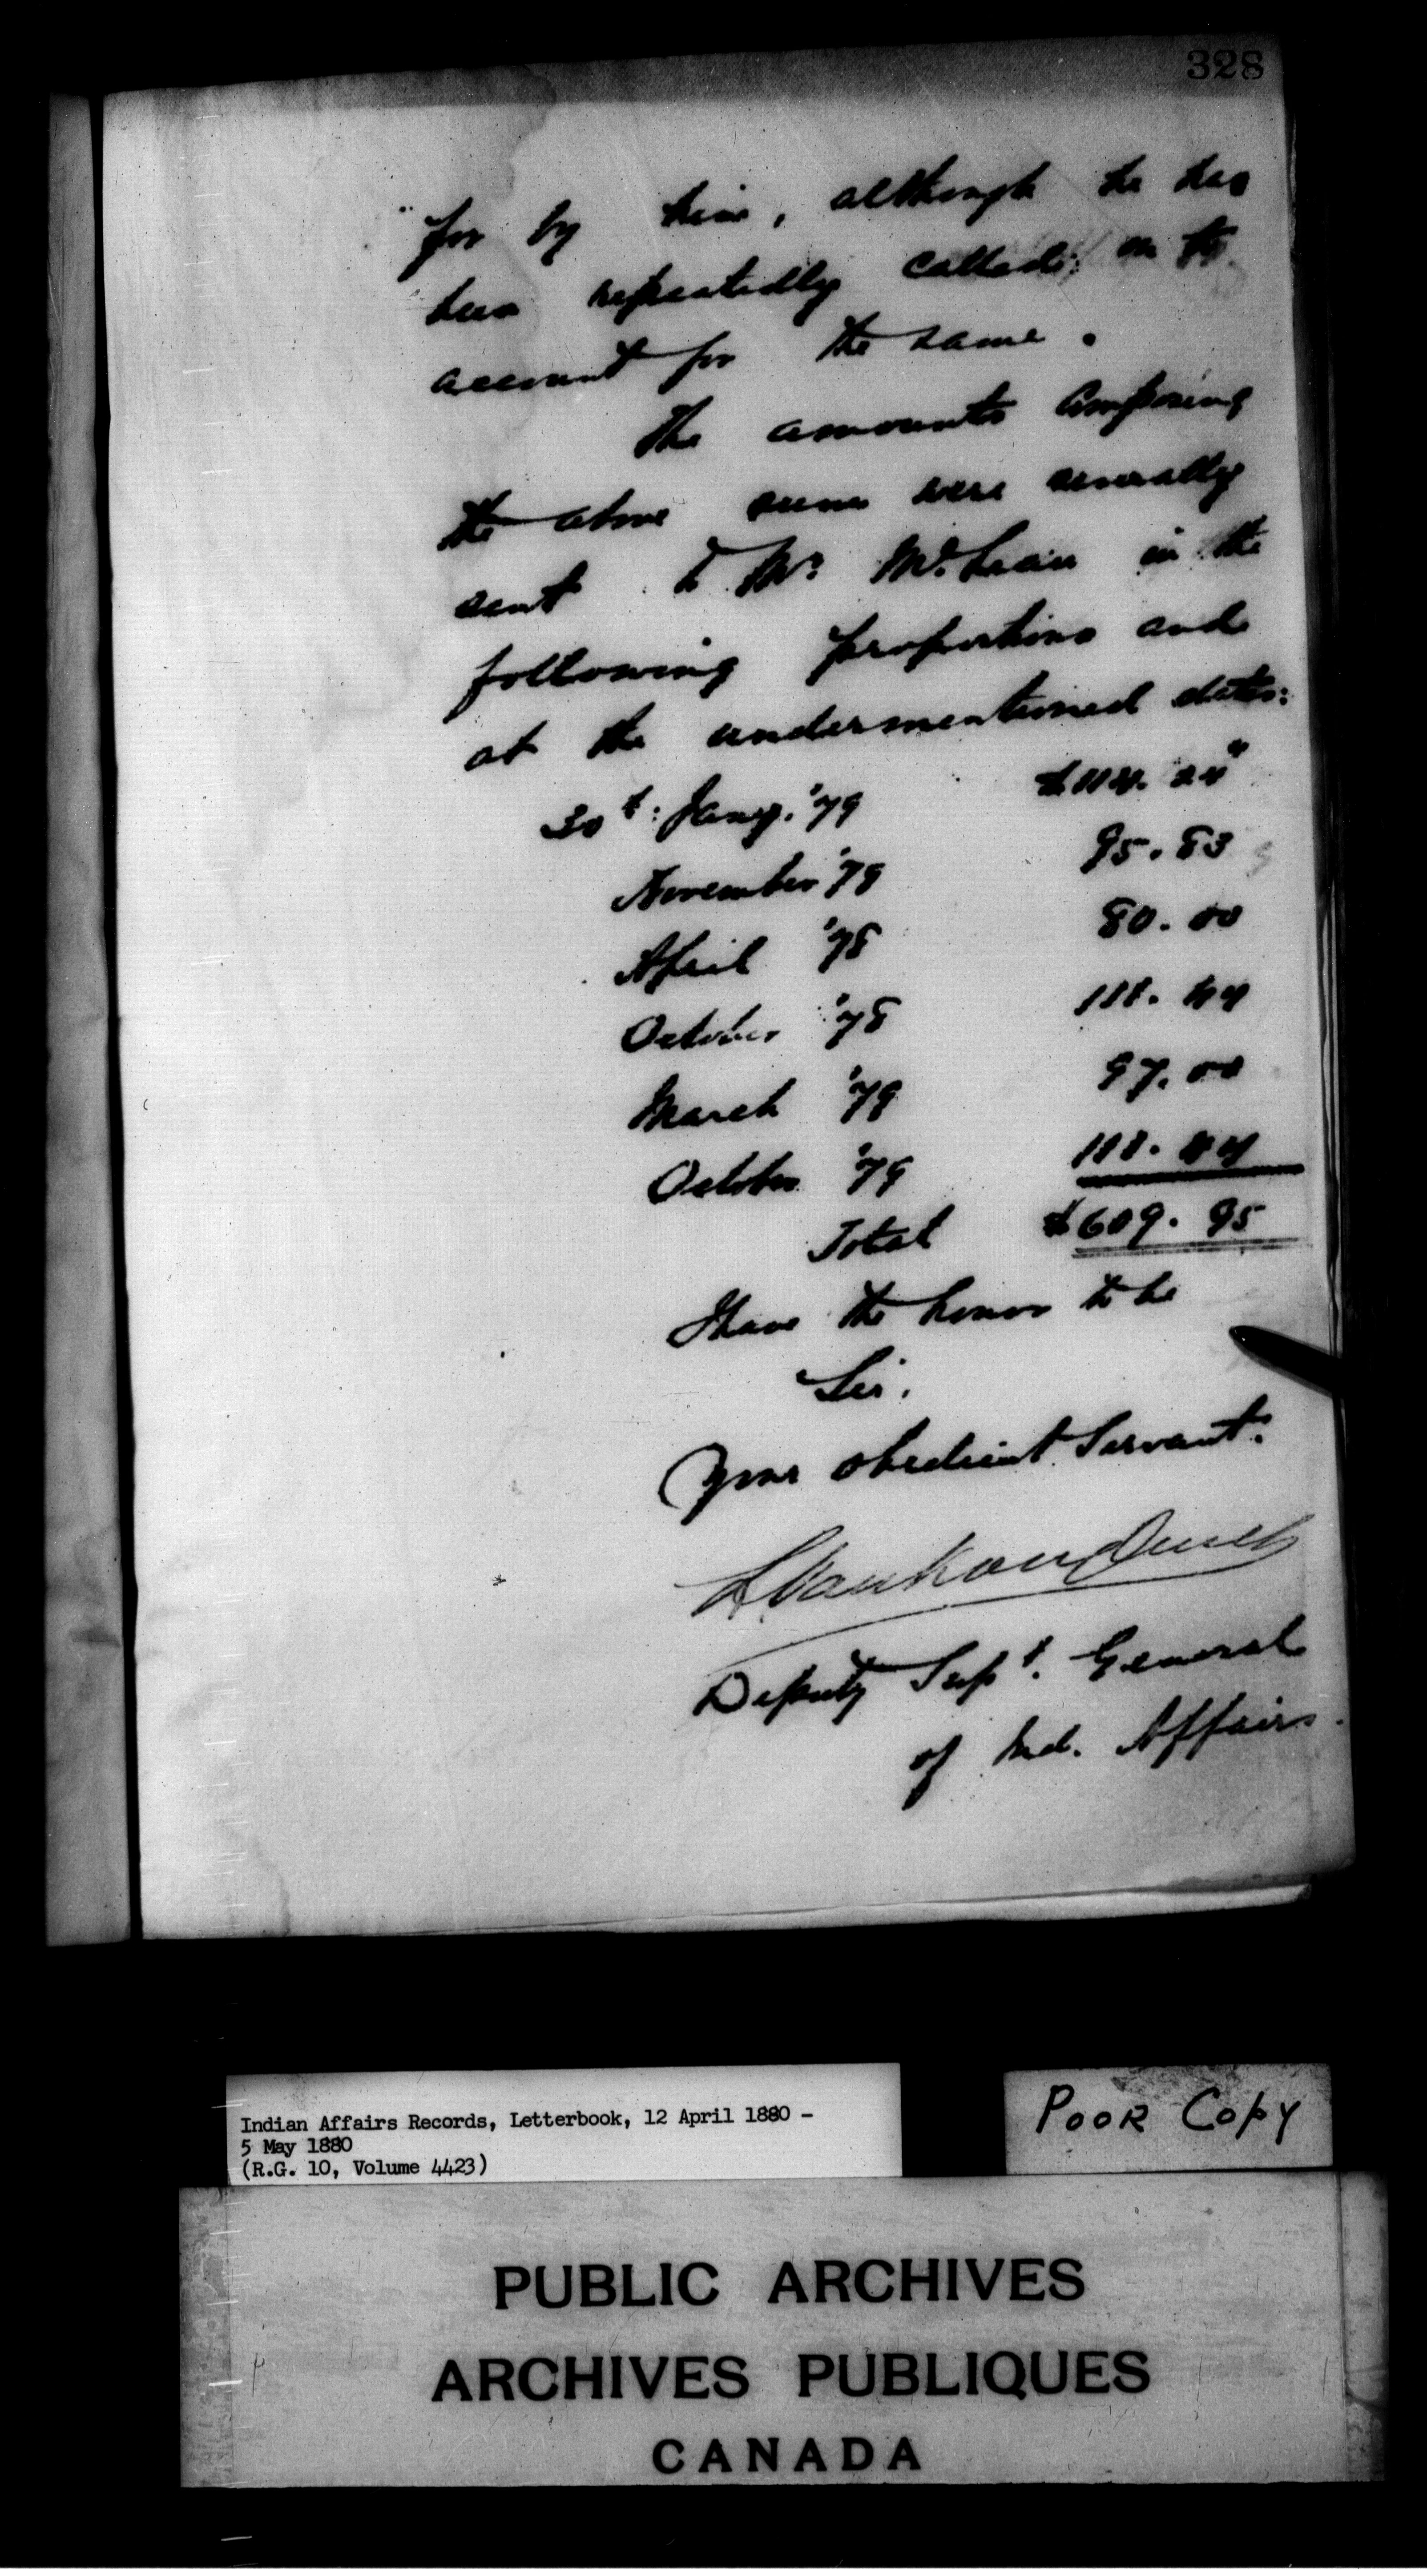 328
for by him, although he has
been repeatedly called on to
account for the same.
The amounts composing
the above sum were severally
sent to Mr. McLean in the
following proportions and
at the undermentioned dates:
30t: Jany. '79 $114.24
November '79 95.83
April '78 80.00
October '78 111.44
March '79 97.00
October '79 111.44
Total $609.95
I have the honor to be
Sir,
Your obedient Servant.
L VanKoughnet
Deputy Supt. General
of Ind. Affairs.
Indian Affairs Records, Letterbook, 12 April 1880 -
5 May 1880
(R.G. 10, Volume 4423)
POOR COPY
PUBLIC ARCHIVES
ARCHIVES PUBLIQUES
CANADA